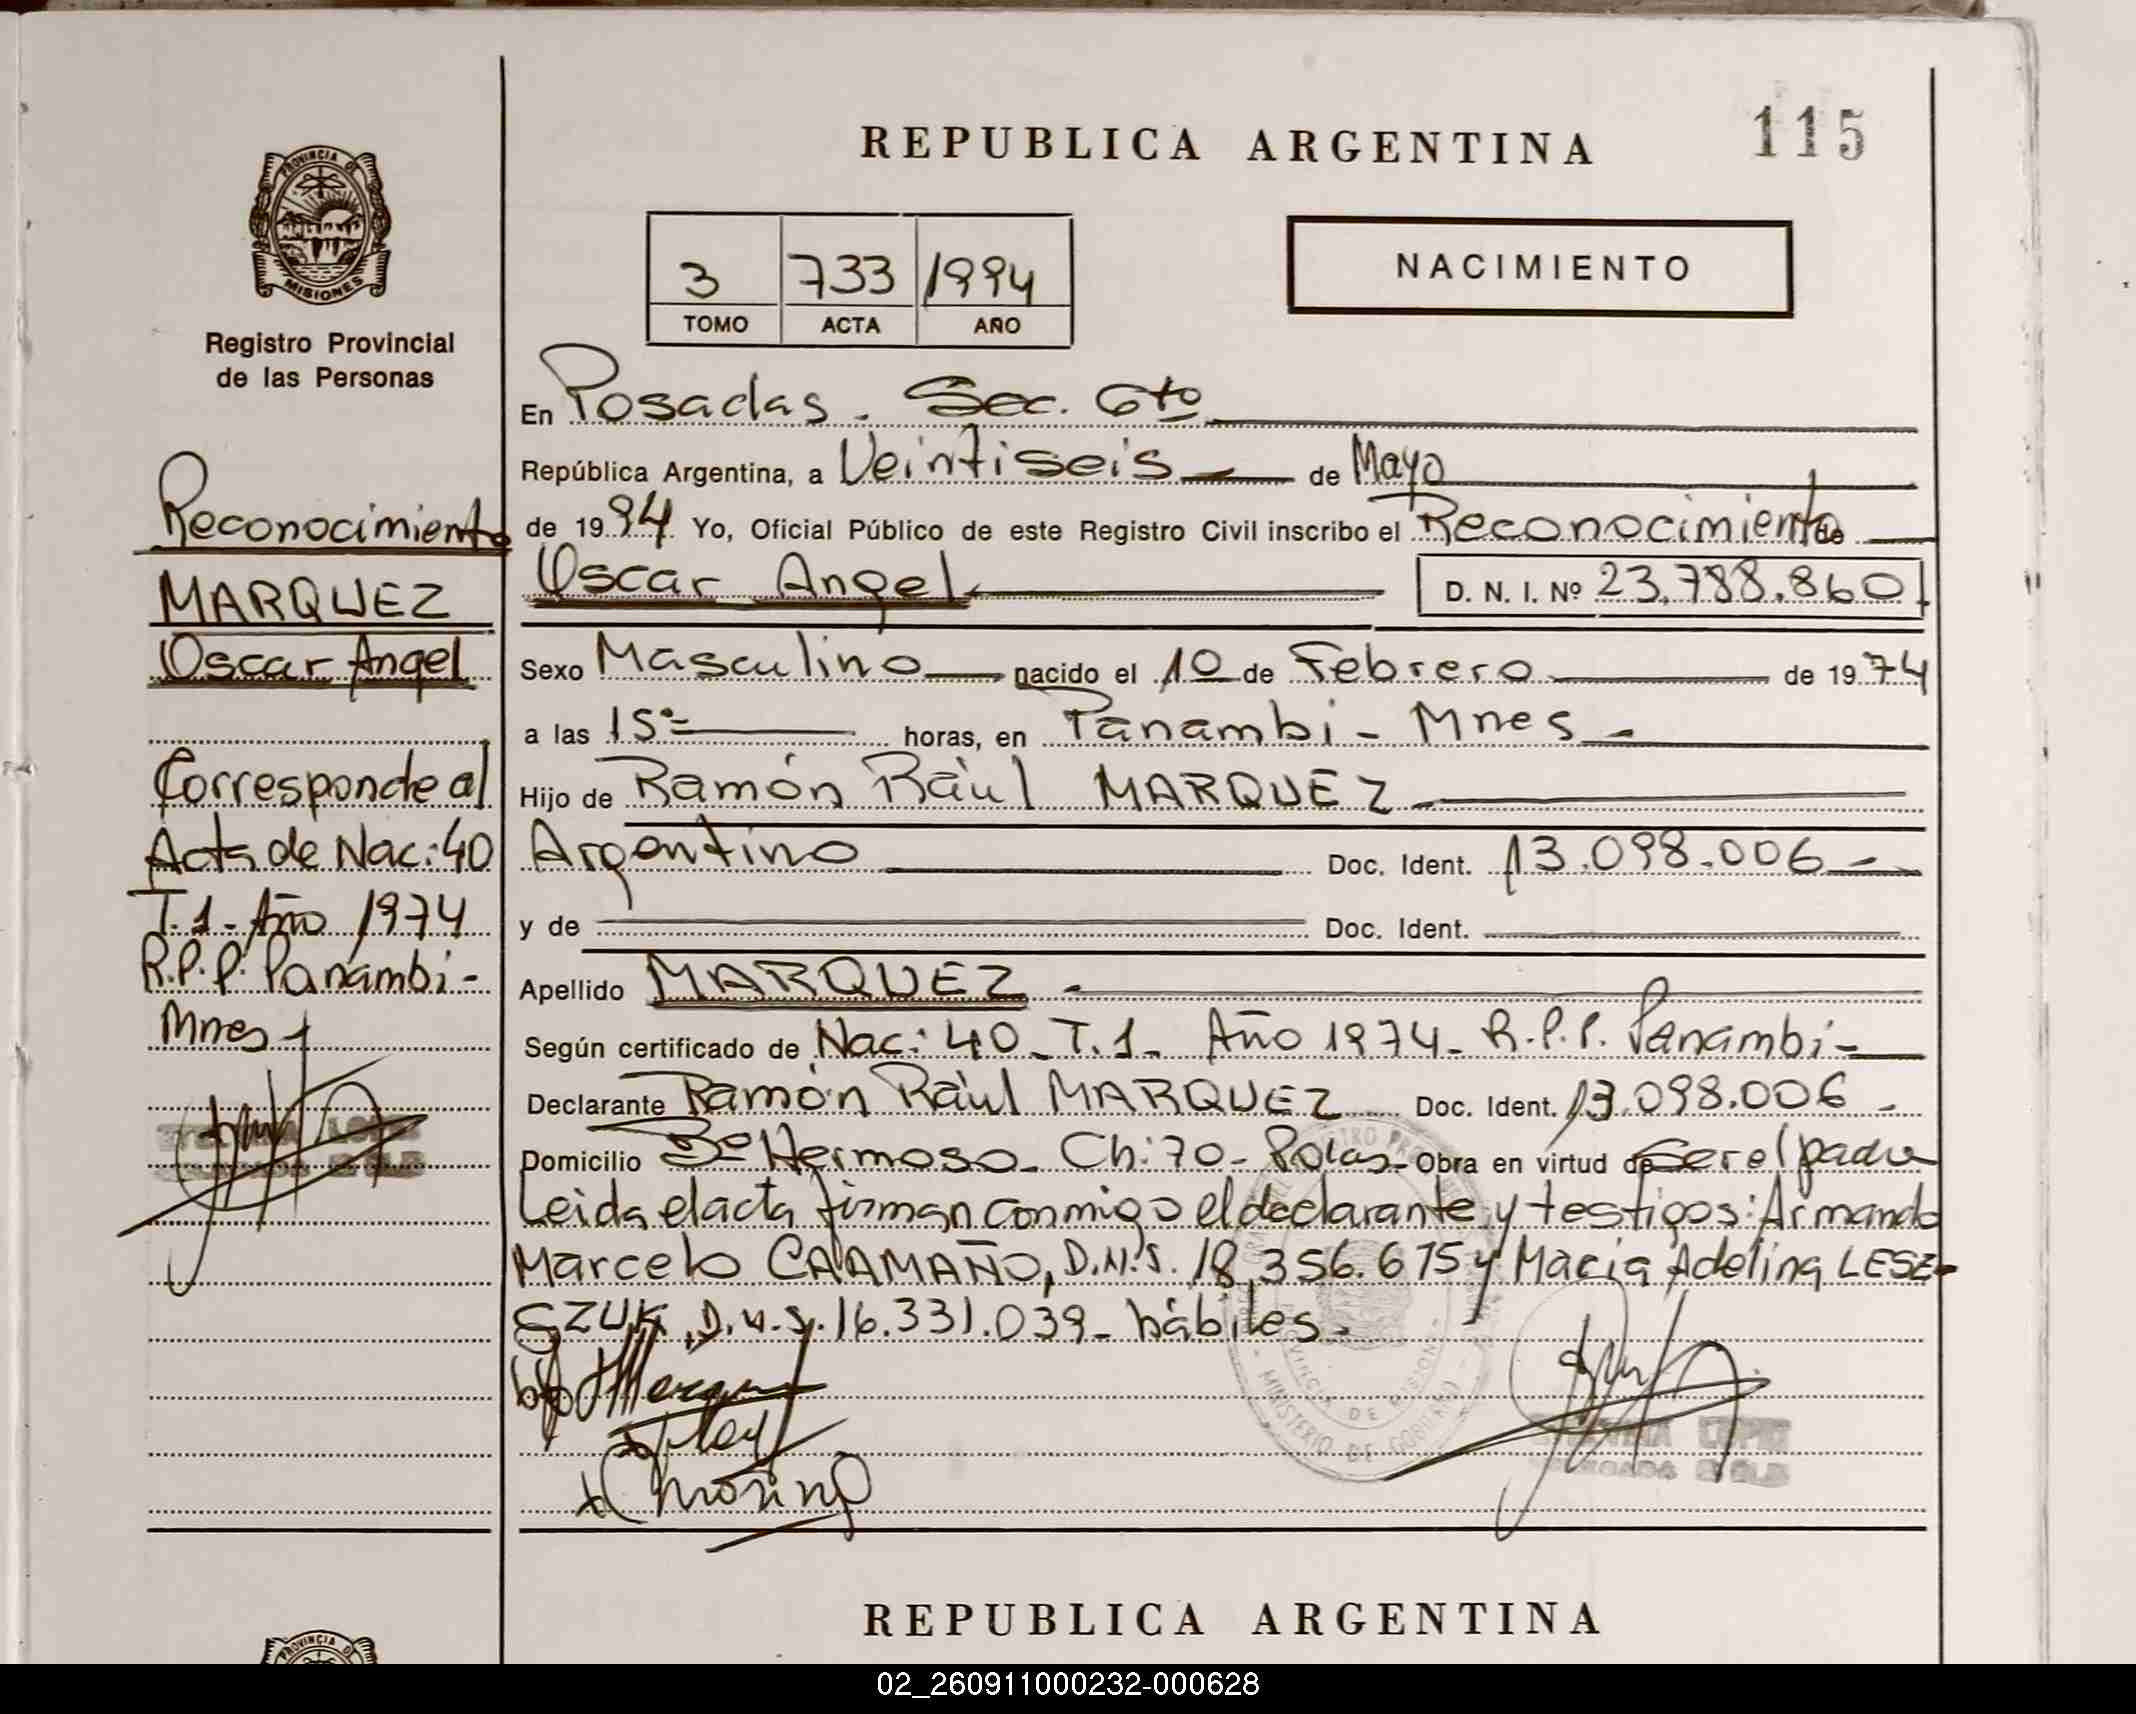 REPUBLICA ARGENTINA
115
PROVINCIA DE
MISIONES
Registro Provincial
de las Personas
3 733 1994
TOMO ACTA AÑO
NACIMIENTO
Reconocimiento
MARQUEZ
Oscar Angel
Corresponde al
Acta de Nac: 40
T. 1 - Año 1974
R.P.P. Panambi -
Mnes
En Posadas - Sec. 6to
República Argentina, a Veintiseis de Mayo
de 1994 Yo, Oficial Público de este Registro Civil inscribo el Reconocimiento de
Oscar Angel D. N. I. Nº 23.788.860
Sexo Masculino nacido el 10 de Febrero de 1974
a las 15 horas, en Panambi - Mnes -
Hijo de Ramón Raúl MARQUEZ
Argentino Doc. Ident. 13.098.006
y de Doc. Ident.
Apellido MARQUEZ
Según certificado de Nac: 40 - T. 1 - Año 1974 - R.P.P. Panambi -
Declarante Ramón Raúl MARQUEZ Doc. Ident. 13.098.006 -
Domicilio Bº Hermoso - Ch: 70 - Pdas - Obra en virtud de ser el padre
Leida el acta firman conmigo el declarante y testigos: Armando
Marcelo CAAMAÑO, D.N.I. 18.356.675 y Maria Adelina LESZ-
CZUK, D.N.I. 16.331.039 - hábiles.
MINISTERIO DE GOBIERNO
PROVINCIA DE MISIONES
REPUBLICA ARGENTINA
PROVINCIA DE
02_260911000232-000628